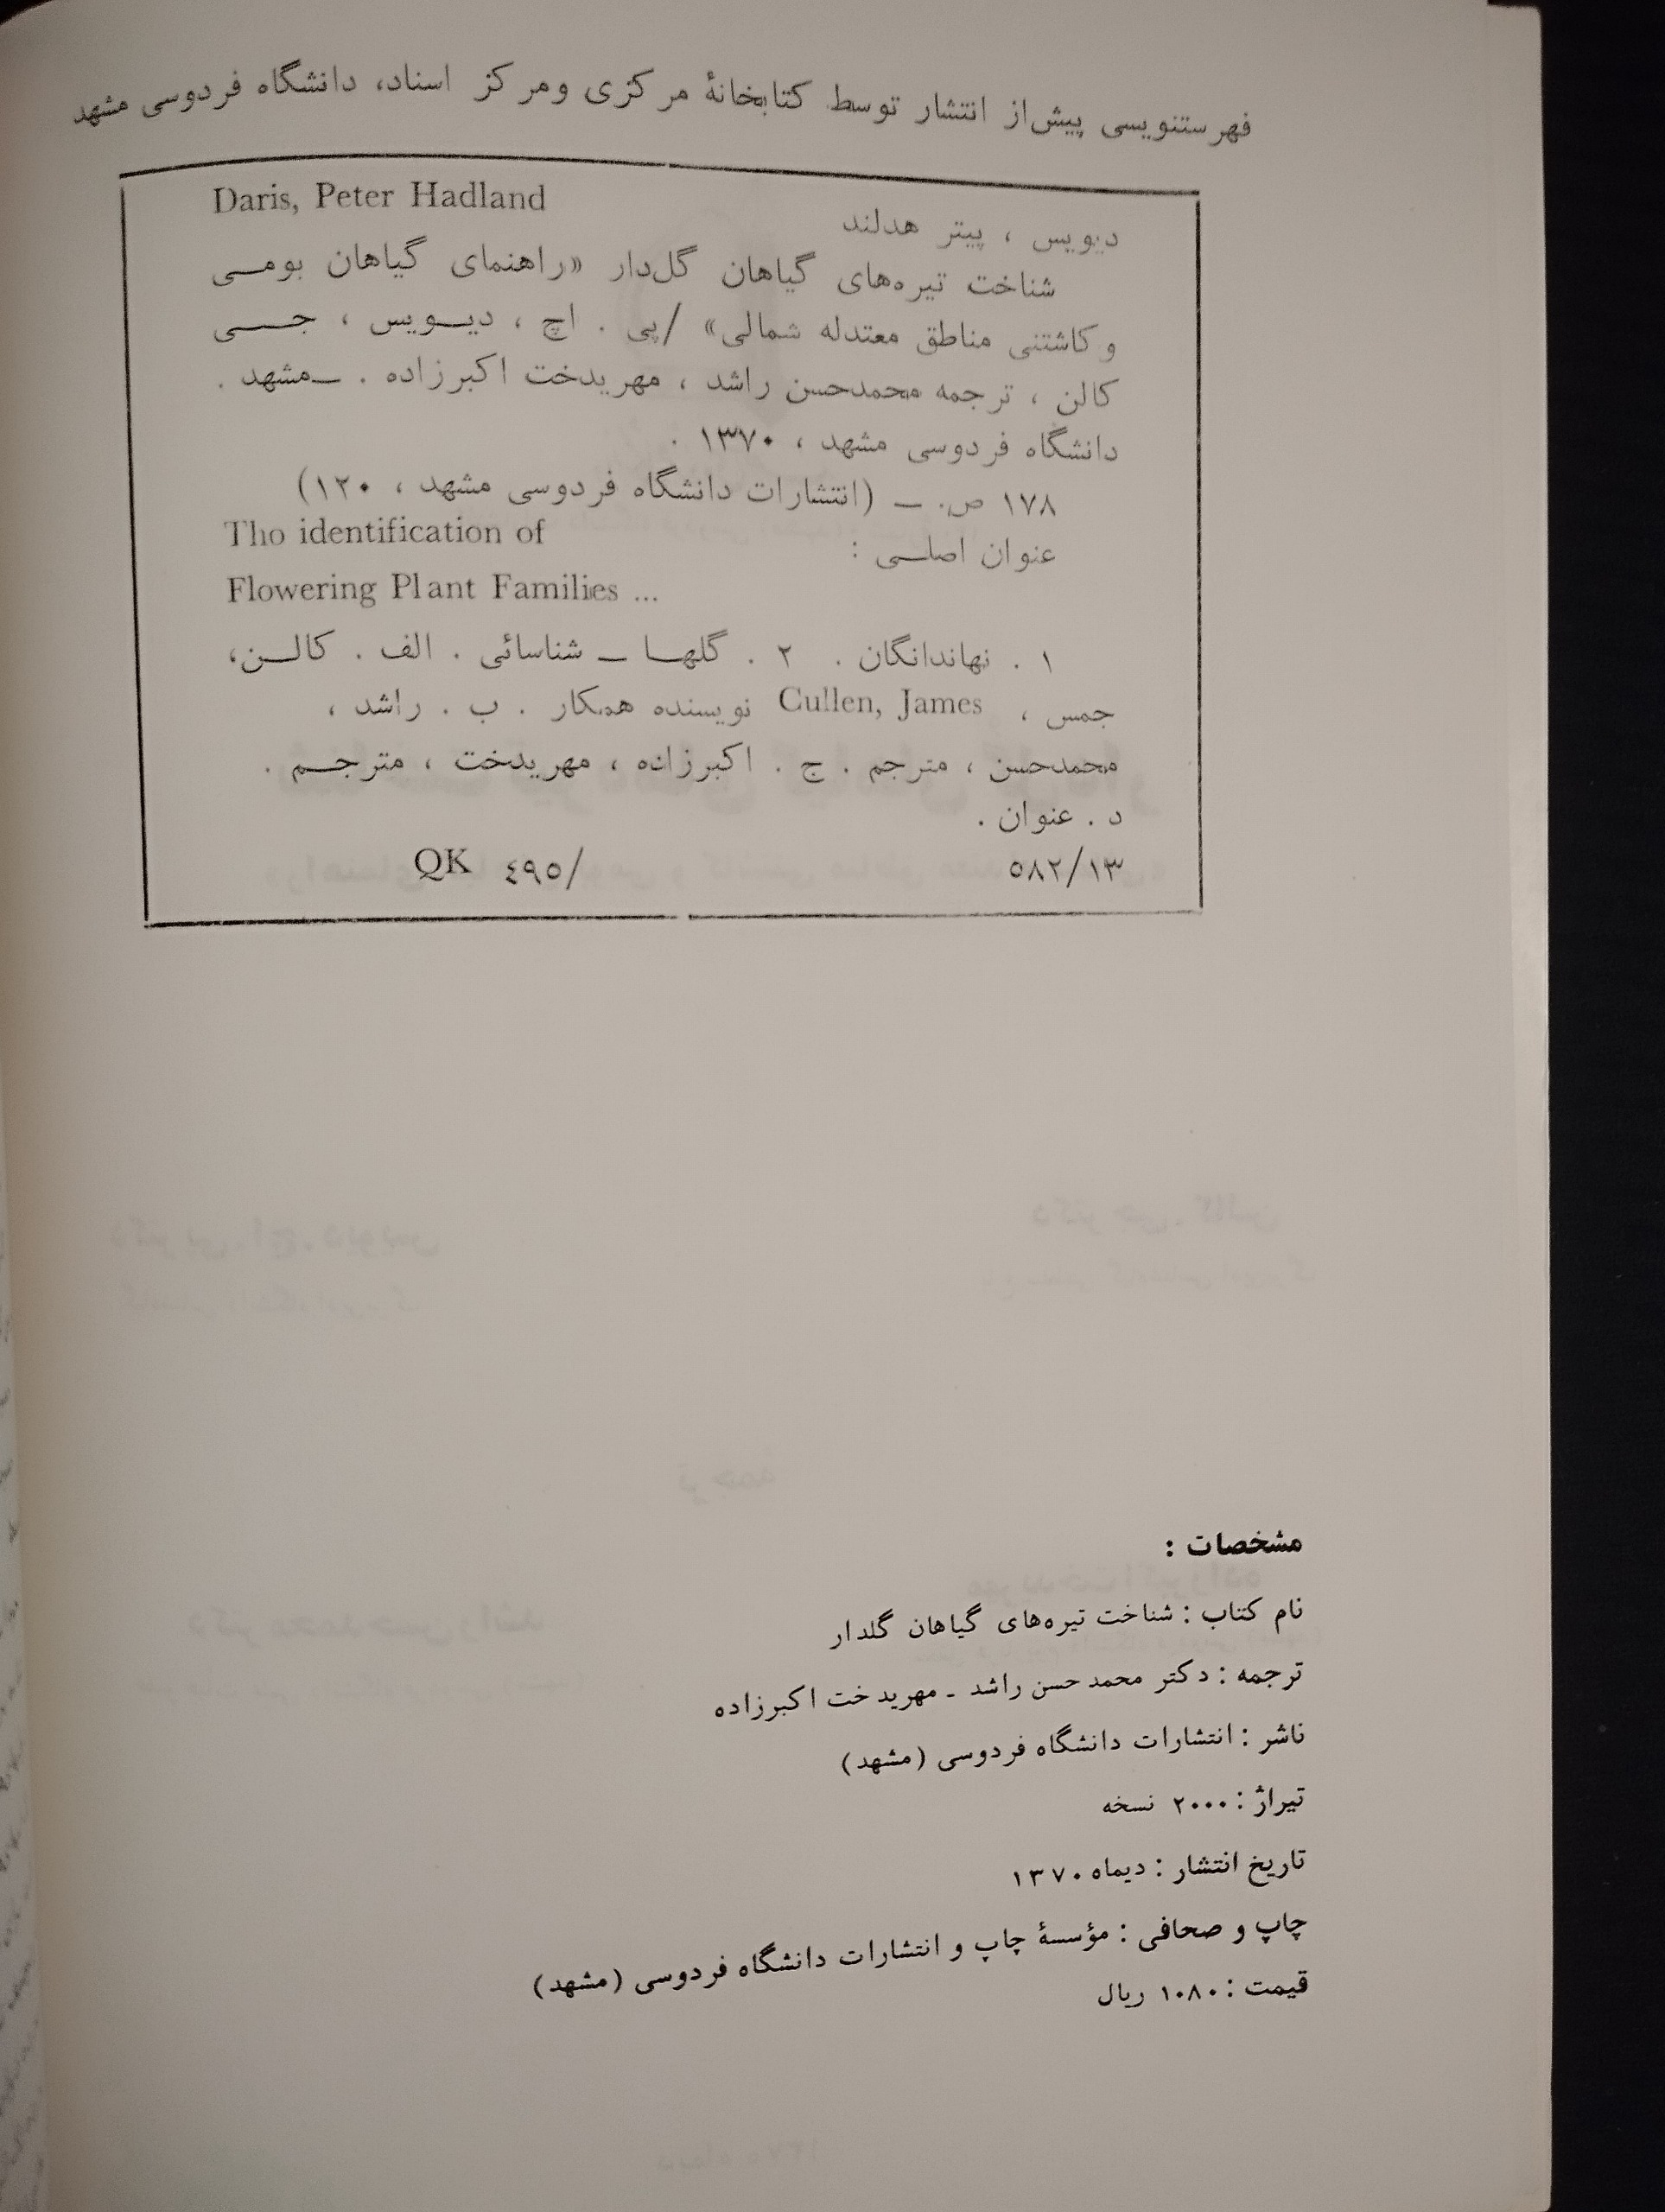 فهرستنویسی پیش‌از انتشار توسط کتابخانهٔ مرکزی ومرکز اسناد، دانشگاه فردوسی مشهد
Daris, Peter Hadland
دیویس ، پیتر هدلند
شناخت تیره‌های گیاهان گل‌دار «راهنمای گیاهان بومی
و کاشتنی مناطق معتدله شمالی» /پی . اچ ، دیویس ، جی
کالن ، ترجمه محمدحسن راشد ، مهریدخت اکبرزاده . ــ مشهد .
دانشگاه فردوسی مشهد ، ۱۳۷۰ .
۱۷۸ ص. ــ (انتشارات دانشگاه فردوسی مشهد ، ۱۲۰)
عنوان اصلی : Tho identification of
Flowering Plant Families ...
۱ . نهاندانگان . ۲ . گلها ــ شناسائی . الف . کالن،
جمس ، Cullen, James نویسنده همکار . ب . راشد ،
محمدحسن ، مترجم . ج . اکبرزاده ، مهریدخت ، مترجم .
د . عنوان .
۵۸۲/۱۳ QK ٤٩٥/
مشخصات :
نام کتاب : شناخت تیره‌های گیاهان گلدار
ترجمه : دکتر محمد حسن راشد ـ مهریدخت اکبرزاده
ناشر : انتشارات دانشگاه فردوسی (مشهد)
تیراژ : ۲۰۰۰ نسخه
تاریخ انتشار : دیماه ۱۳۷۰
چاپ و صحافی : مؤسسهٔ چاپ و انتشارات دانشگاه فردوسی (مشهد)
قیمت : ۱۰۸۰ ریال